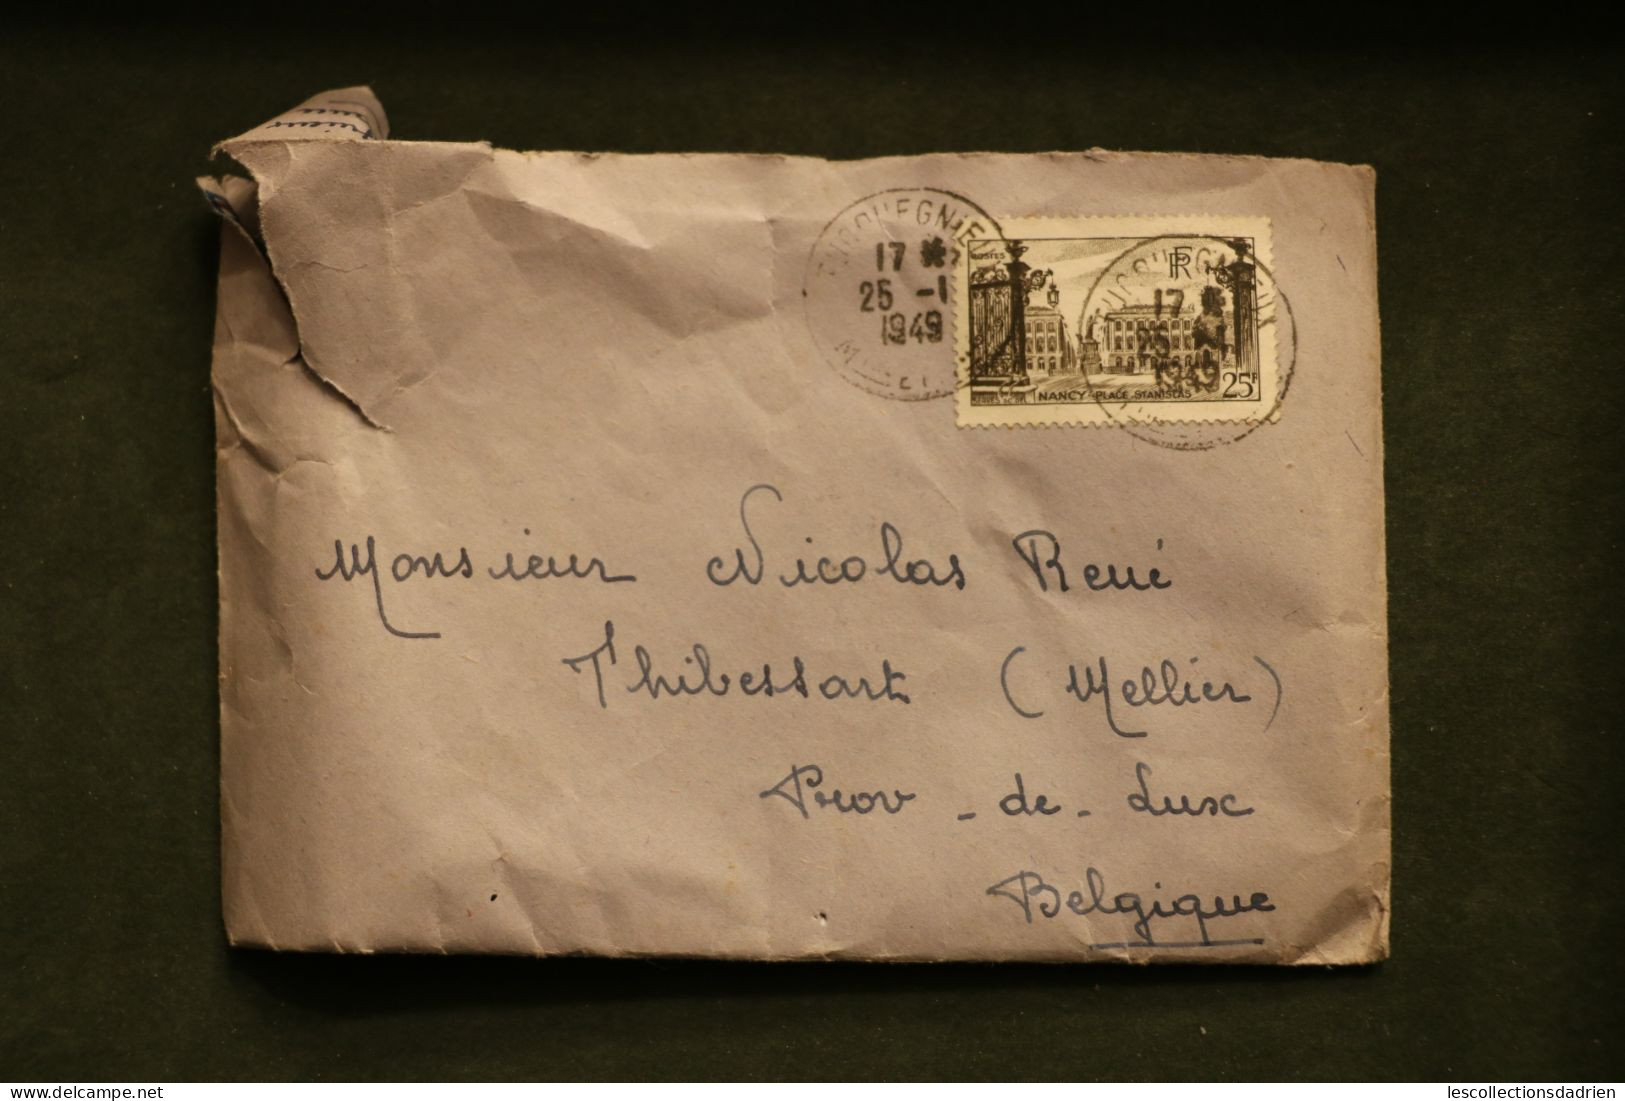 TUCQUEGNIEUX
17
25 -1
1949
POSTES
RF
17
25 -1
1949
NANCY-PLACE STANISLAS
25F
Monsieur Nicolas René
Thibessart (Mellier)
Prov - de - Lux
Belgique
lescollectionsdadrien